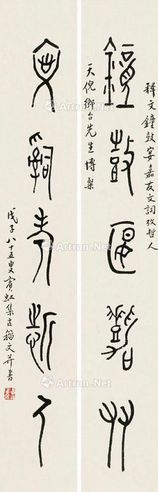 鐘鼓宴嘉友
釋文鐘鼓宴嘉友文詞攷哲人
天倪鄉台先生博粲
文詞攷哲人
戊子八十五叟賓虹集古籀文并書